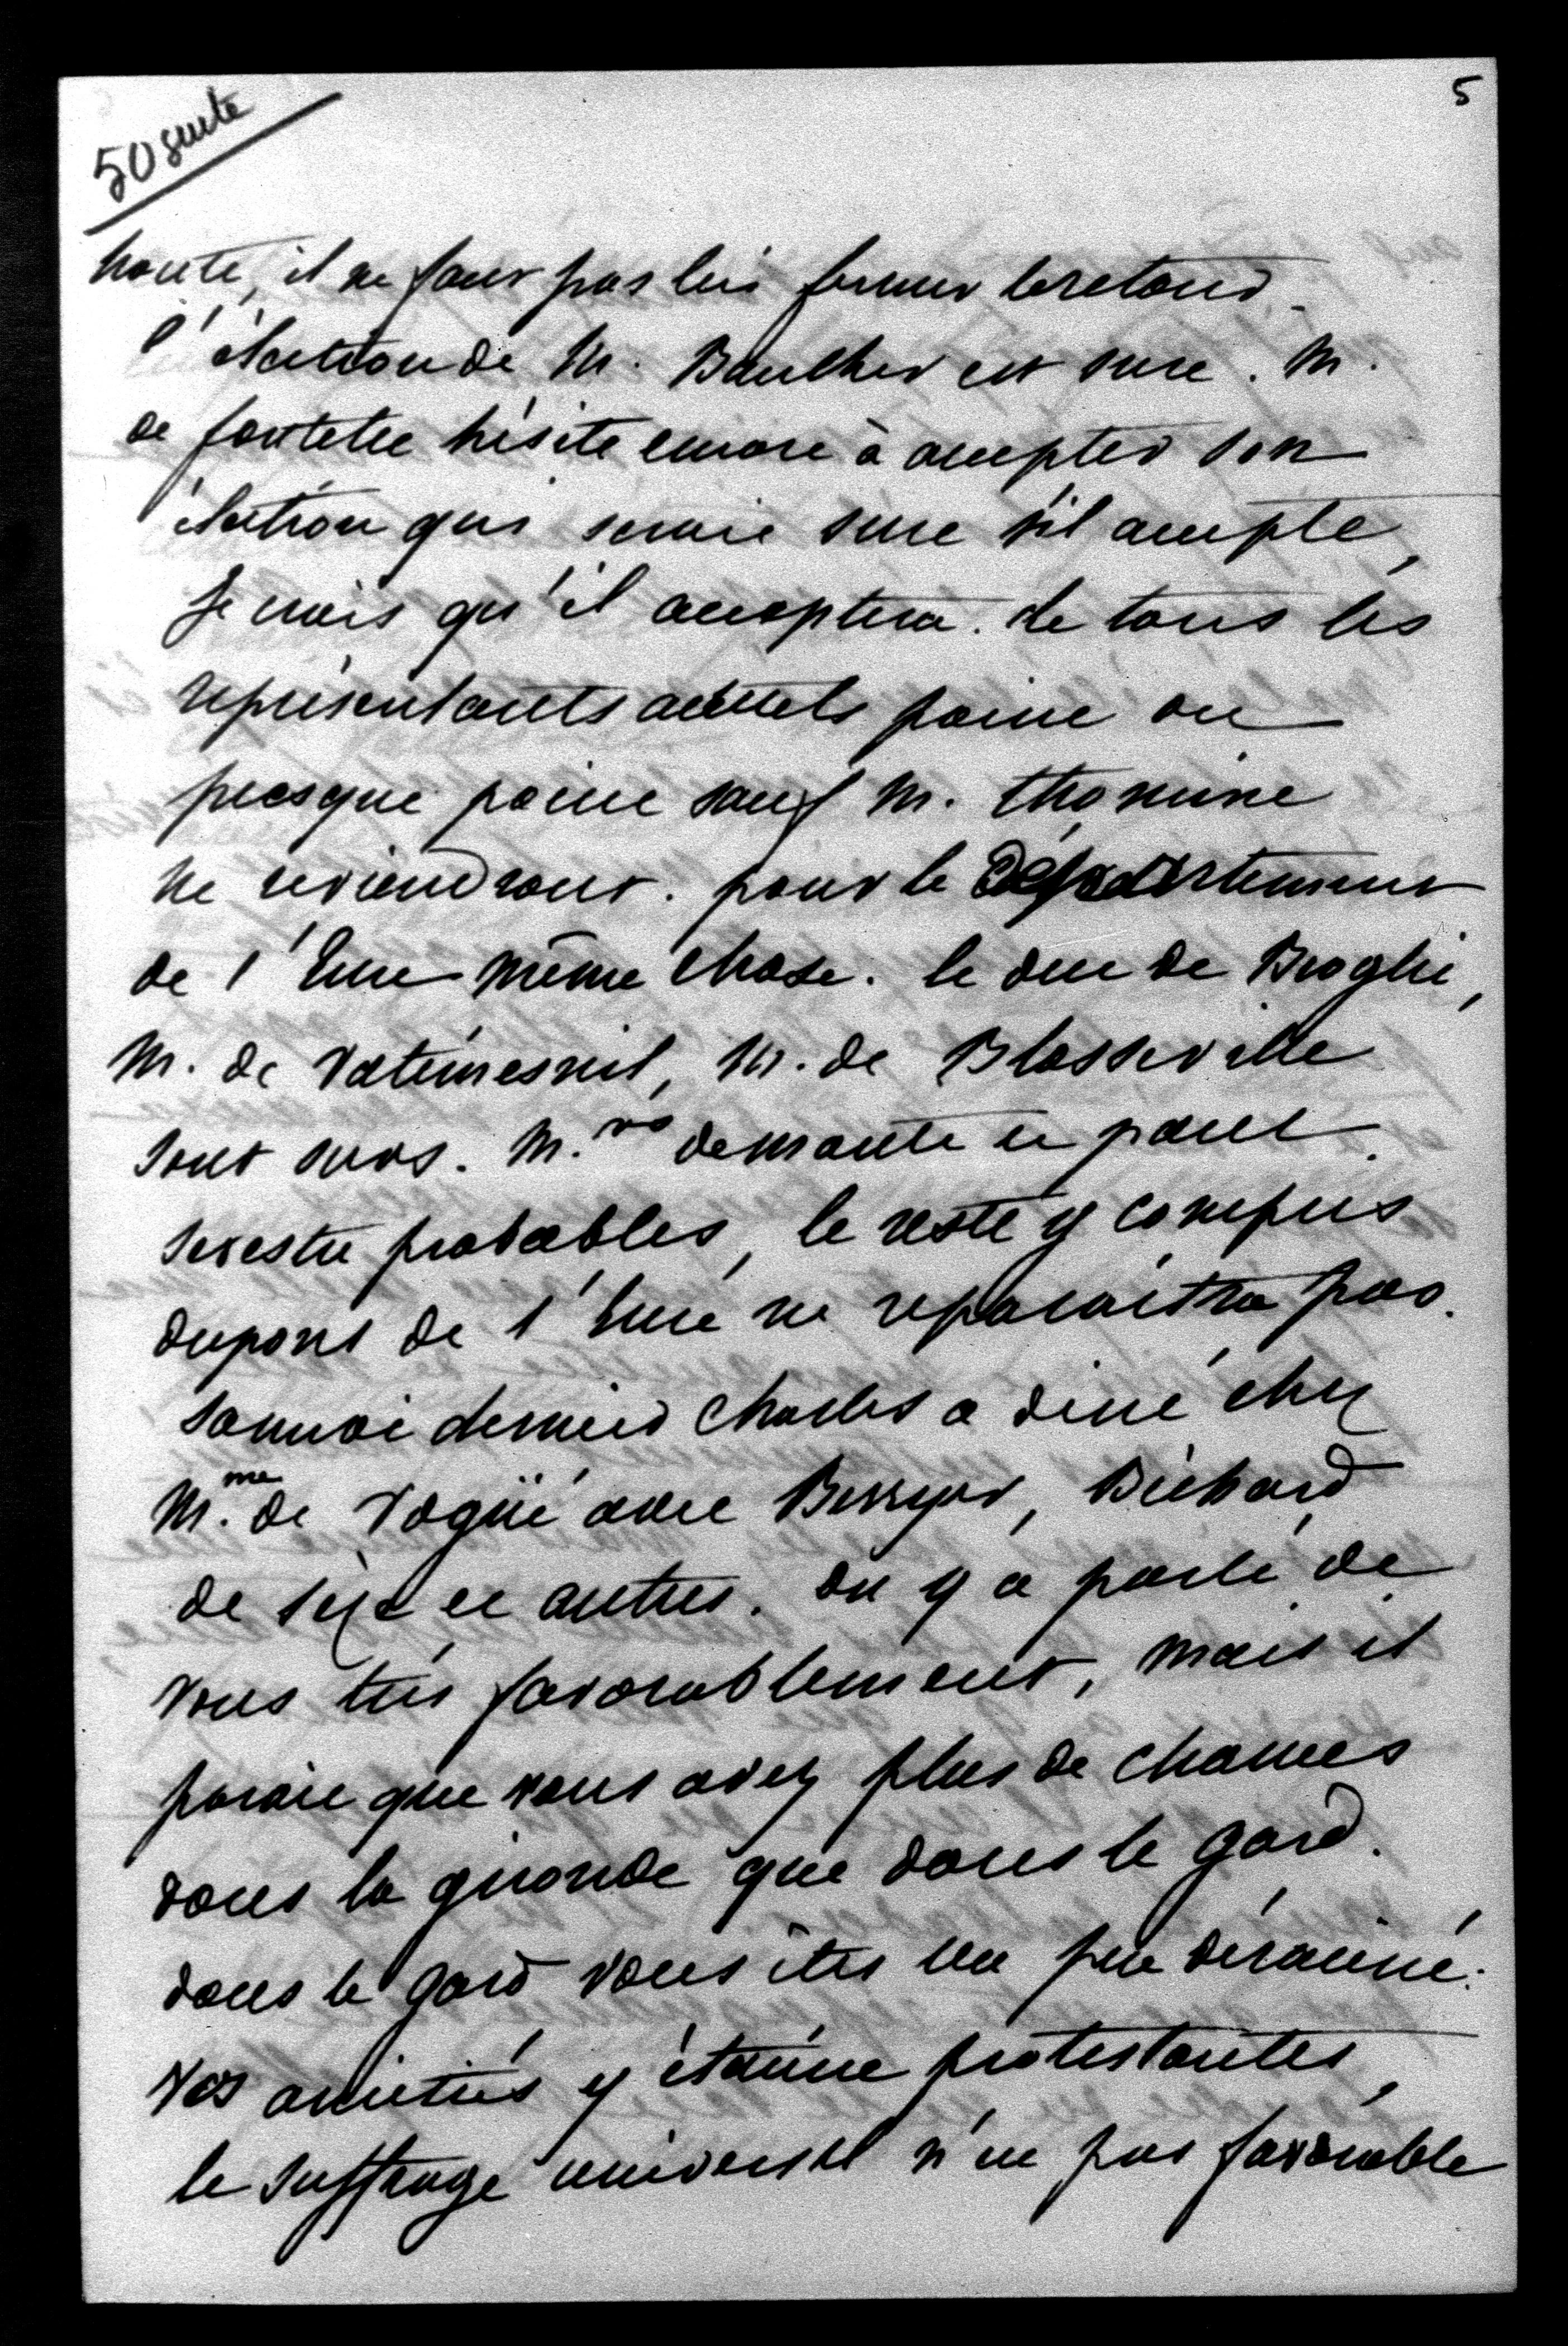 50 suite
5
honte, il ne faut pas lui fermer le retour.
l'élection de M. Bauther est sure. M.
de fontette hésite encore à accepter son
élection qui serait sure s'il accepte,
Je crois qu'il acceptera. de tous les
représentants actuels point ou
presque point sauf M. thomine
ne reviendront. pour le Département
de l'Eure même chose. le duc de Broglie,
M. de Vatimesnil, M. de Blosseville
sont surs. M.rs demante et paul
sevestre probables, le reste y compris
dupont de l'Eure ne reparaîtra pas.
samedi dernier Charles a diné chez
M.me de Vogüé avec Berryer, Béchard
de sèze et autres. on y a parlé de
vous très favorablement, mais il
parait que vous avez plus de chances
dans la gironde que dans le gard.
dans le gard vous êtes un peu déraciné.
vos amitiés y étaient protestantes,
le suffrage universel n'est pas favorable